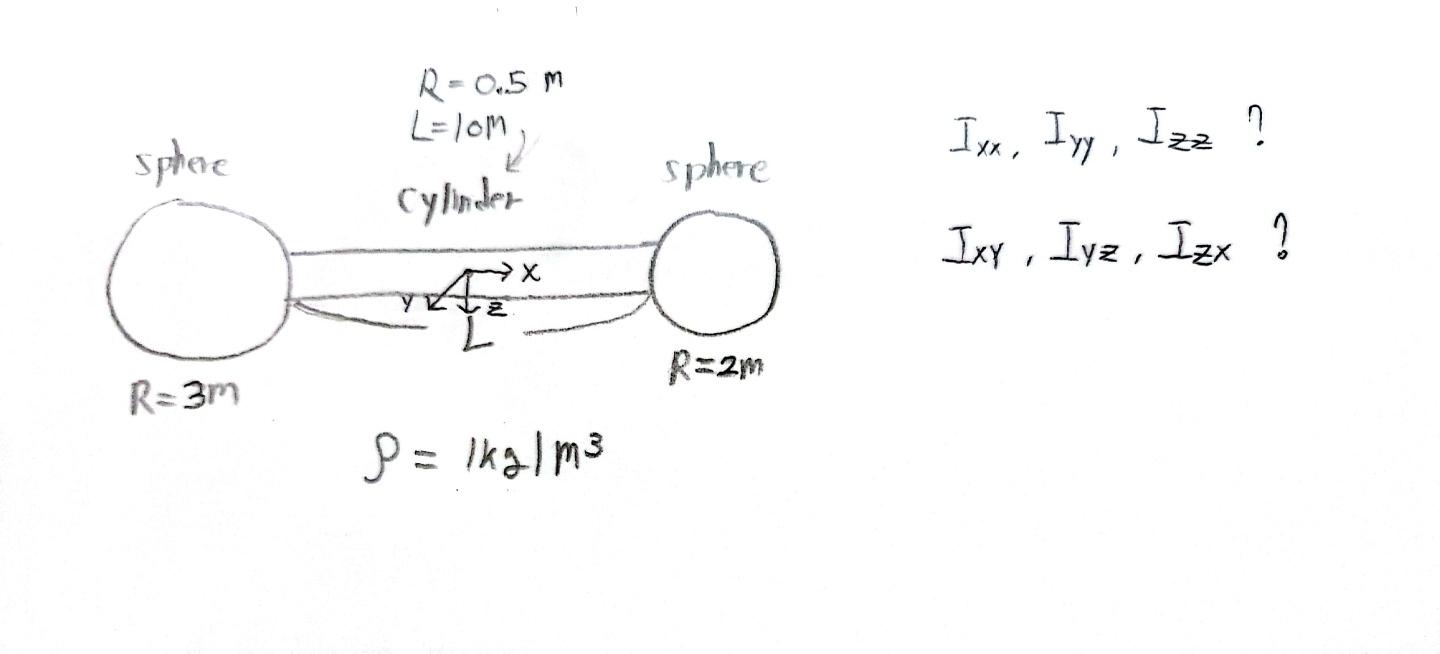 R=0.5 m
L=10m
sphere
cylinder
sphere
x
y
z
L
R=3m
R=2m
ρ= 1kg/m³
Ixx, Iyy, Izz ?
Ixy, Iyz, Izx ?